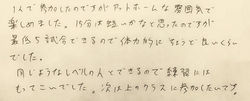 1人で参加したのですがアットホームな雰囲気で
楽しめました。15分は短いかなと思ったのですが
最低5試合できるので体力的にちょうど良いくらい
でした。
同じようなレベルの人とできるので練習には
もってこいでした。次は上のクラスに参加したいです。